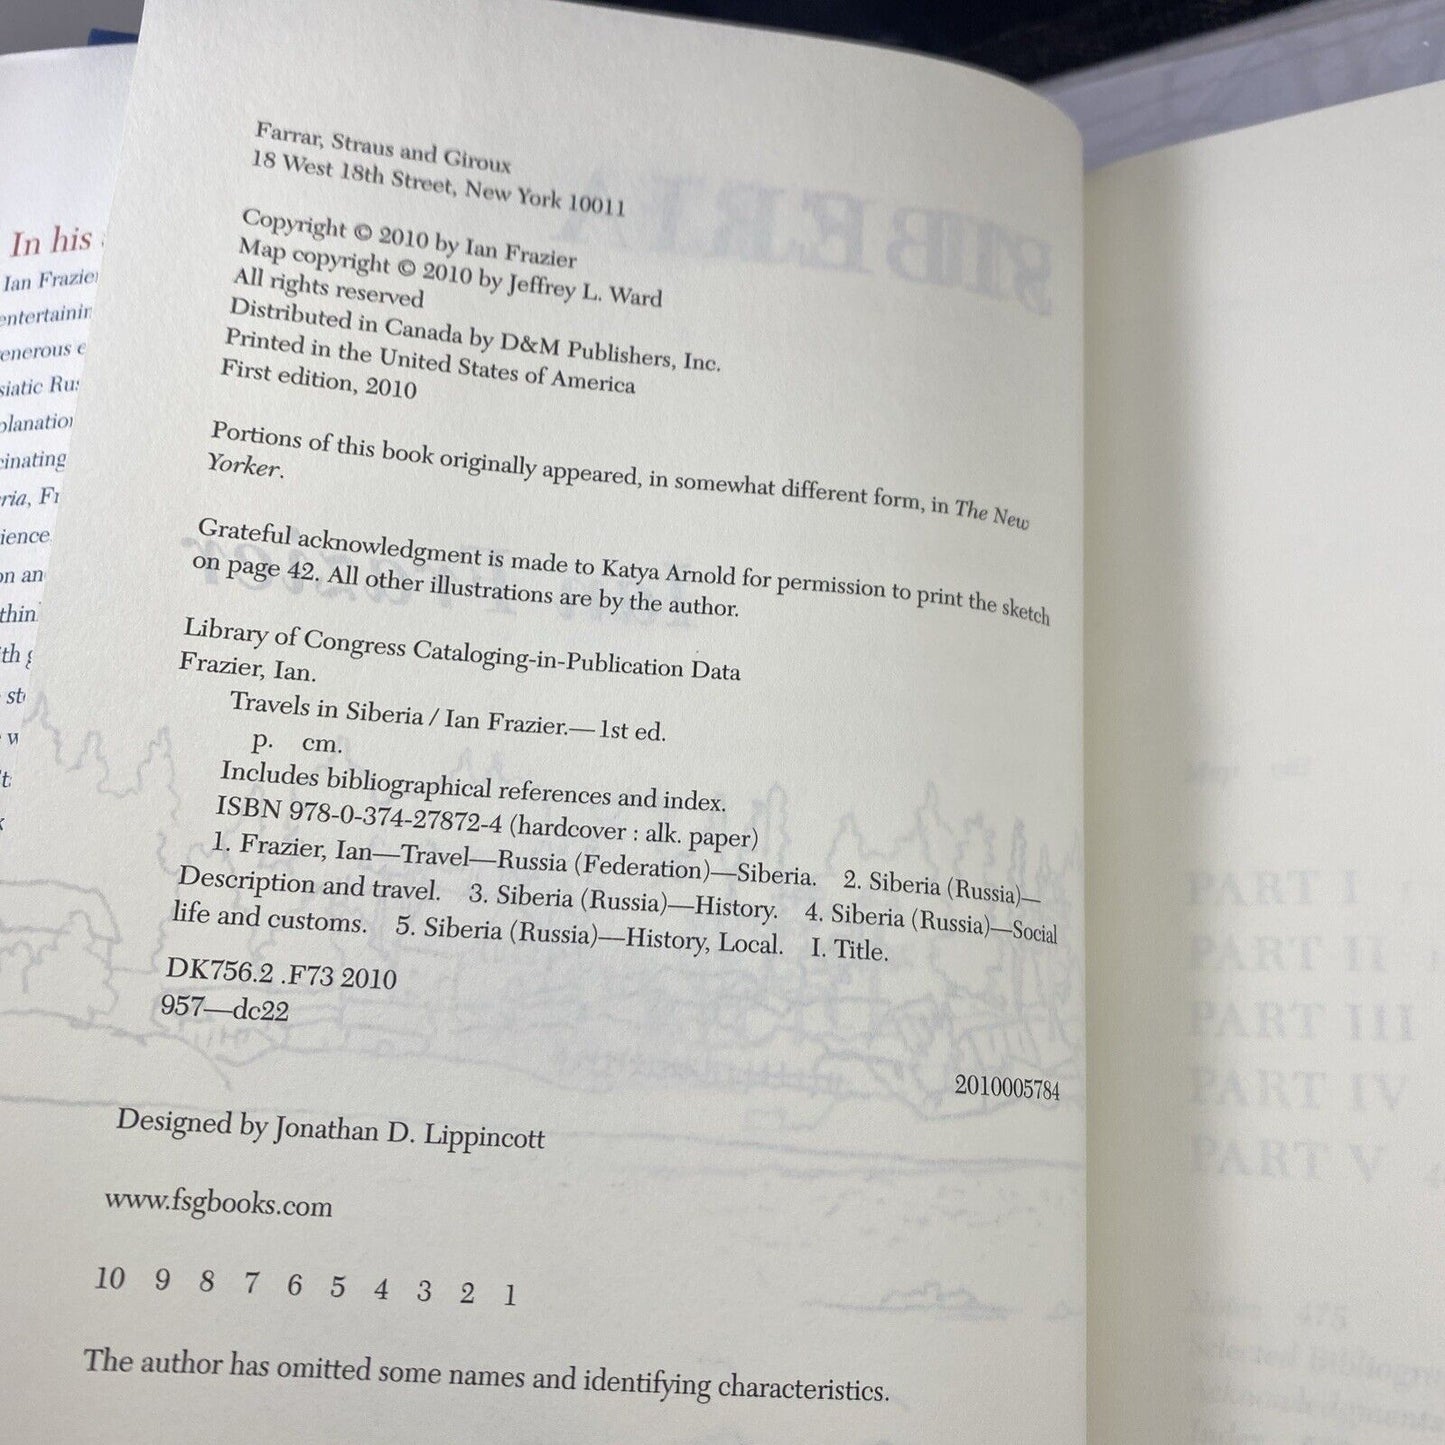 Farrar, Straus and Giroux
18 West 18th Street, New York 10011
Copyright © 2010 by Ian Frazier
Map copyright © 2010 by Jeffrey L. Ward
All rights reserved
Distributed in Canada by D&M Publishers, Inc.
Printed in the United States of America
First edition, 2010
Portions of this book originally appeared, in somewhat different form, in The New
Yorker.
Grateful acknowledgment is made to Katya Arnold for permission to print the sketch
on page 42. All other illustrations are by the author.
Library of Congress Cataloging-in-Publication Data
Frazier, Ian.
Travels in Siberia / Ian Frazier.—1st ed.
p. cm.
Includes bibliographical references and index.
ISBN 978-0-374-27872-4 (hardcover : alk. paper)
1. Frazier, Ian—Travel—Russia (Federation)—Siberia. 2. Siberia (Russia)—
Description and travel. 3. Siberia (Russia)—History. 4. Siberia (Russia)—Social
life and customs. 5. Siberia (Russia)—History, Local. I. Title.
DK756.2 .F73 2010
957—dc22
2010005784
Designed by Jonathan D. Lippincott
www.fsgbooks.com
10 9 8 7 6 5 4 3 2 1
The author has omitted some names and identifying characteristics.
In his
Ian Frazier
siatic
cinating
on an
PART I
PART II
PART III
PART IV
PART V
Notes 475
Selected
Acknowledgments
Index